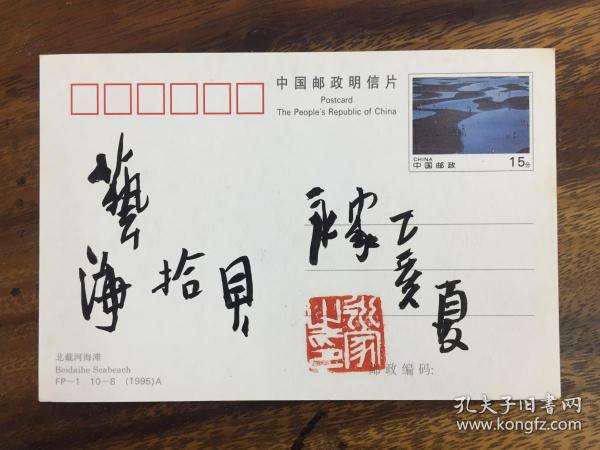 中国邮政明信片
Postcard
The People's Republic of China
CHINA
中国邮政 15分
藝
海拾貝
永家
乙亥夏
北戴河海滩
Beidaihe Seabeach
FP—1 10—8 (1995)A
邮政编码:
孔夫子旧书网
www.kongfz.com